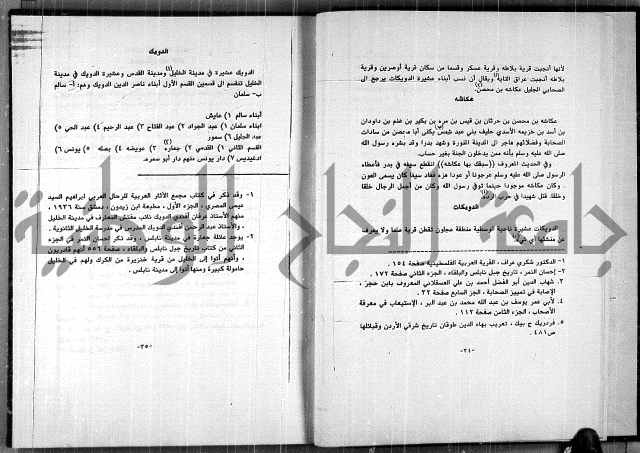 لأنها أنجبت قرية بلاطه وقرية عسكر وقسما من سكان قرية أوصرين وقرية
بلاطه أنجبت عراق التايه (١) ويقال أن نسب أبناء عشيرة الدويكات يرجع الى
الصحابي الجليل عكاشه بن محصن. (٢)
عكاشه
عكاشه بن محصن بن حرثان بن قيس بن مره بن بكير بن غنم بن داودان
بن اسد بن خزيمه الأسدي حليف بني عبد شمس يكنى أبا محصن من سادات
الصحابة وفضلائهم هاجر الى المدينة المنورة وشهد بدرا وقد بشره رسول الله
صلى الله عليه وسلم بأنه ممن يدخلون الجنة بغير حساب.
وفي الحديث المعروف ((سبقك بها عكاشه)) انقطع سيفه في بدر فأعطاه
رسول الله صلى الله عليه وسلم عرجونا أو عودا هزه فعاد سيفا كان يسمى العون
وكان عكاشه موجودا حينما توفي رسول الله وكان من أجمل الرجال خلقا
وخلقا. قتل شهيدا في حرب الرده
الدويكات
الدويكات عشيرة ناحية الوسطية منطقة عجلون تقطن قرية علما ولا يعرف
عن منشئها أي شيء
١- الدكتور شكري عراف، القرية العربية الفلسطينية صفحة ١٥٤ .
٢- إحسان النمر، تاريخ جبل نابلس والبلقاء، الجزء الثاني صفحة ١٧٢ .
٣. شهاب الدين أبو الفضل أحمد بن علي العسقلاني المعروف بابن حجر ،
الإصابة في تمييز الصحابة، الجزء السابع صفحة ٣٢ .
٤. لأبي عمر يوسف بن عبد الله محمد بن عبد البر ، الإستيعاب في معرفة
الأصحاب، الجزء الثامن صفحة ١١٢ .
٥. فردريك ج.بيك، تعريب بهاء الدين طوقان تاريخ شرقي الأردن وقبائلها
ص٤٨١ .
-٣٤-
الدويك
الدويك عشيرة في مدينة الخليل (١) ومدينة القدس وعشيرة الدويك في مدينة
الخليل تنقسم الى قسمين القسم الأول أبناء ناصر الدين الدويك وهم: أ- سالم
ب- سلمان
أبناء سالم ١) عايش
ابناء سلمان ١) عبد الجواد ٢) عبد الفتاح ٣) عبد الرحيم ٤) عبد الحي ٥)
عبد الجليل ٦) سمور
القسم الثاني ١) القدمي ٢) جعاره (٢) ٣) عويضه ٤) بصله ٥) يونس ٦)
ادعيديس ٧) دار يونس منهم دار أبو سمره.
١- وقد ذكر في كتاب مجمع الآثار العربية للرحال العربي ابراهيم السيد
عيسى المصري ، الجزء الأول ، مطبعة ابن زيدون ، دمشق سنة ١٩٣٦ ،
منهم الأستاذ عرفان أفندي الدويك نائب مفتش المعارف في مدينة الخليل
، والأستاذ عبد الرحمن أفندي الدويك المدرس في مدرسة الخليل الثانوية .
٢- يوجد عائلة جعارة في مدينة نابلس ، وقد ذكر احسان النمر في الجزء
الثاني من كتاب تاريخ جبل نابلس والبلقاء ، صفحة ٥٥٦ أنهم قادريون
، وأنهم أتوا إلى الخليل من قرية خنزيرة من الكرك ولهم في الخليل
حامولة كبيرة ومنها أتوا إلى مدينة نابلس.
-٣٥-
جامعة النجاح الوطنية